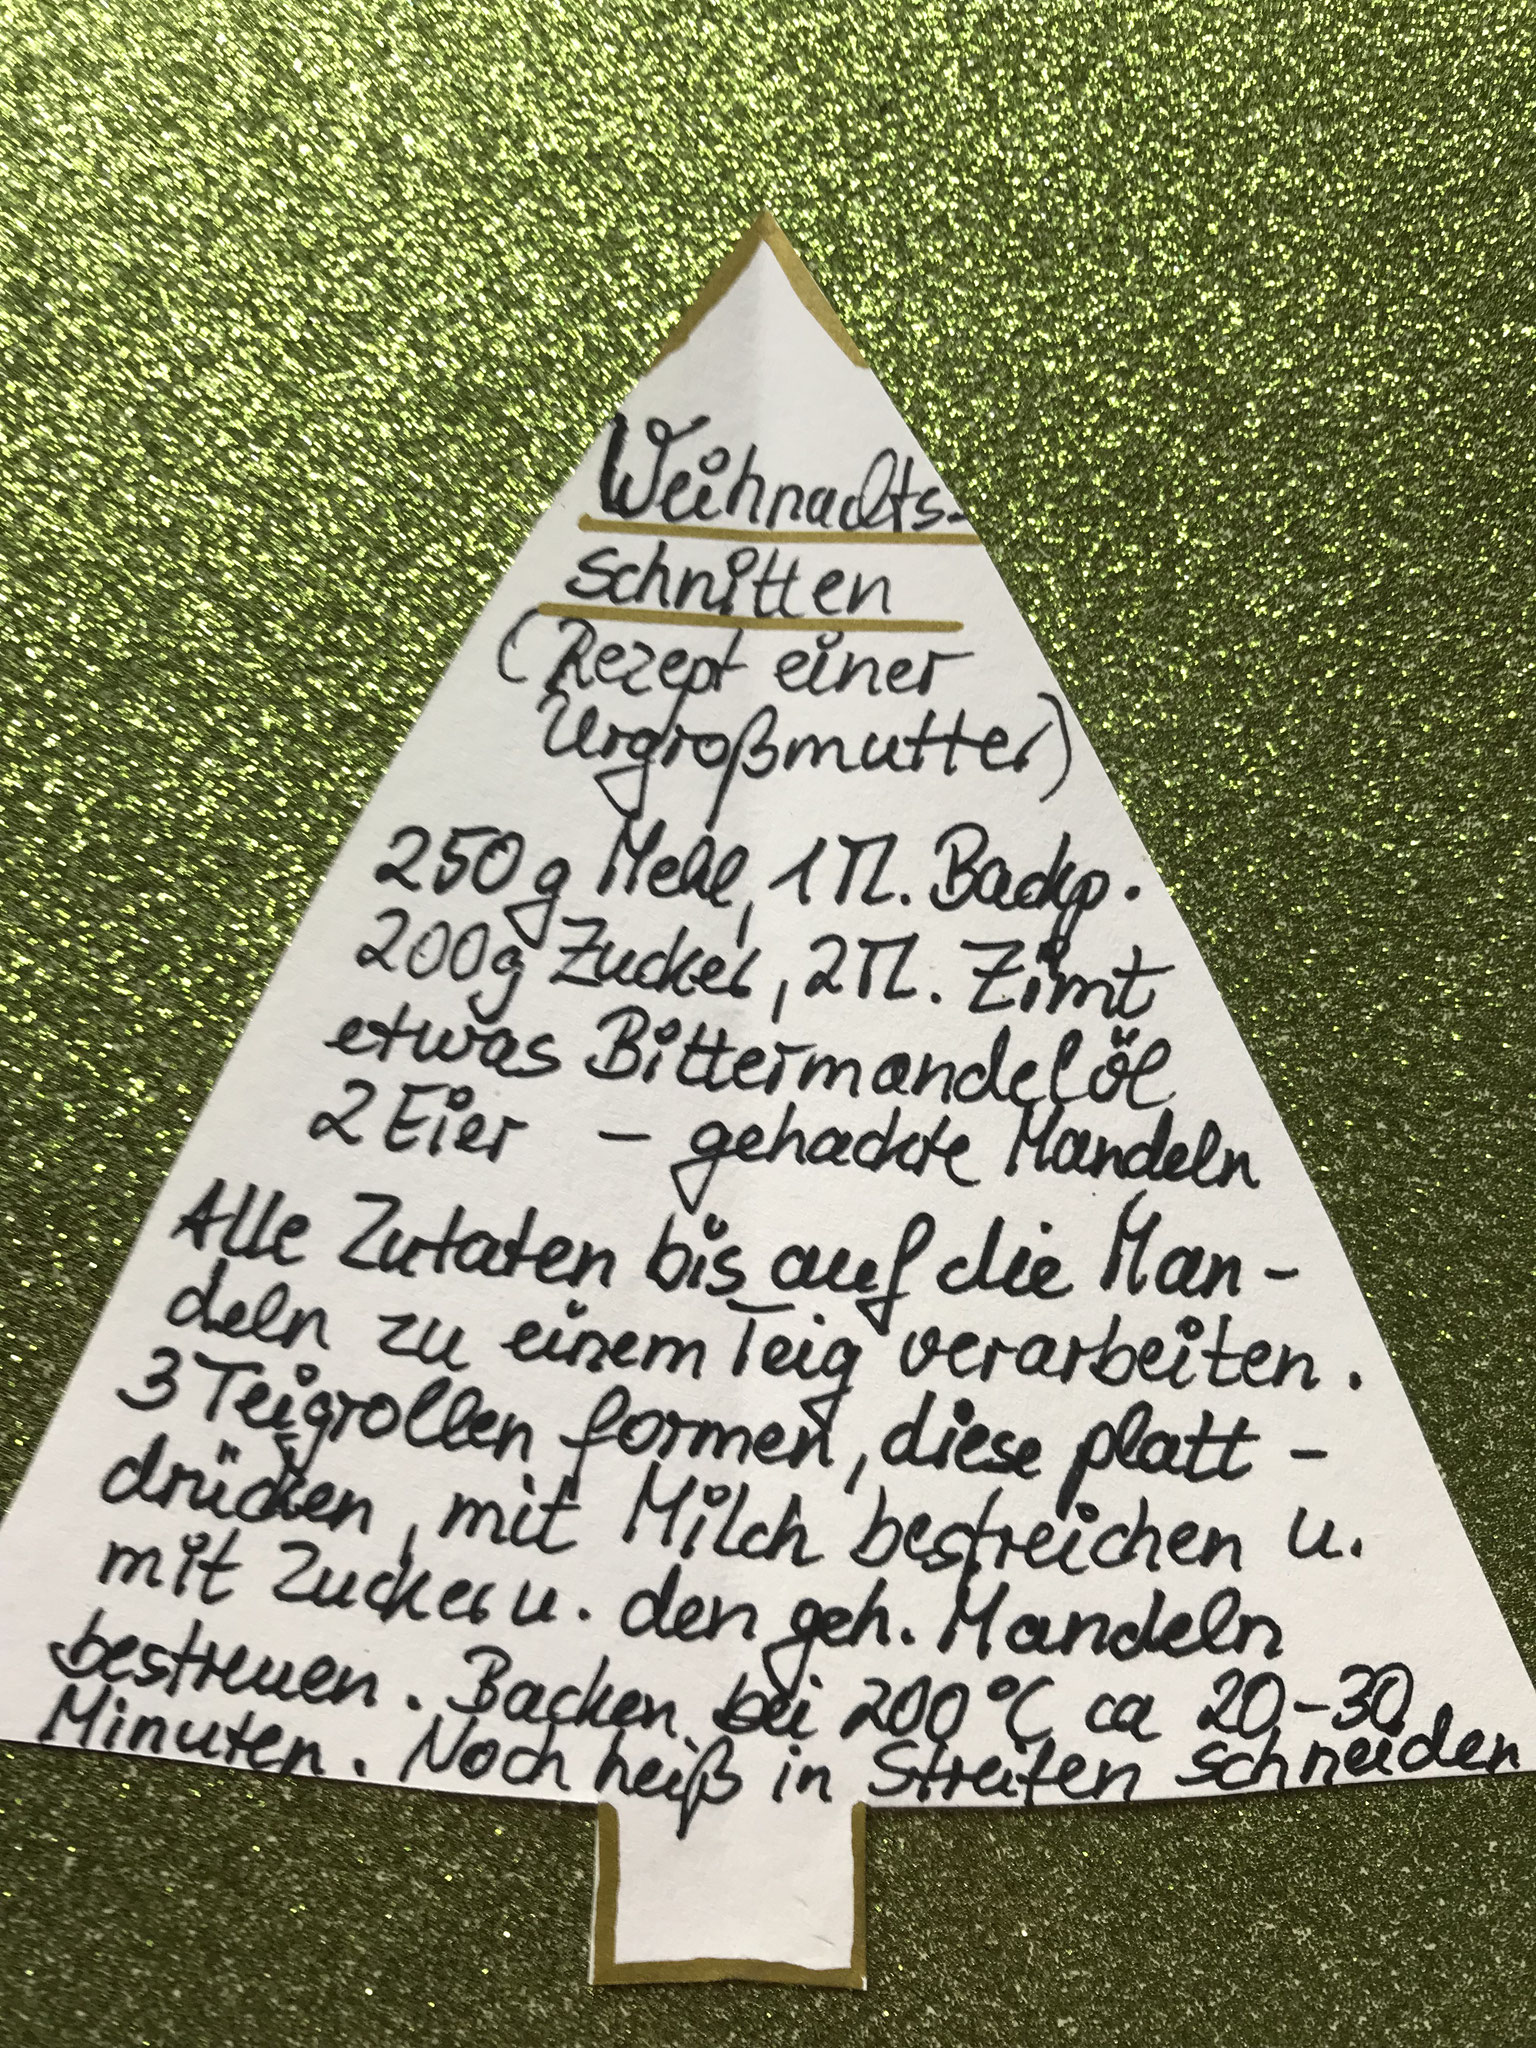 Weihnachts-
schnitten
(Rezept einer
Urgroßmutter)
250g Mehl, 1 Tl. Backp.
200g Zucker, 2 Tl. Zimt
etwas Bittermandelöl
2 Eier – gehackte Mandeln
Alle Zutaten bis auf die Man-
deln zu einem Teig verarbeiten.
3 Teigrollen formen, diese platt-
drücken, mit Milch bestreichen u.
mit Zucker u. den geh. Mandeln
bestreuen. Backen bei 200°C ca 20-30
Minuten. Noch heiß in Streifen schneiden